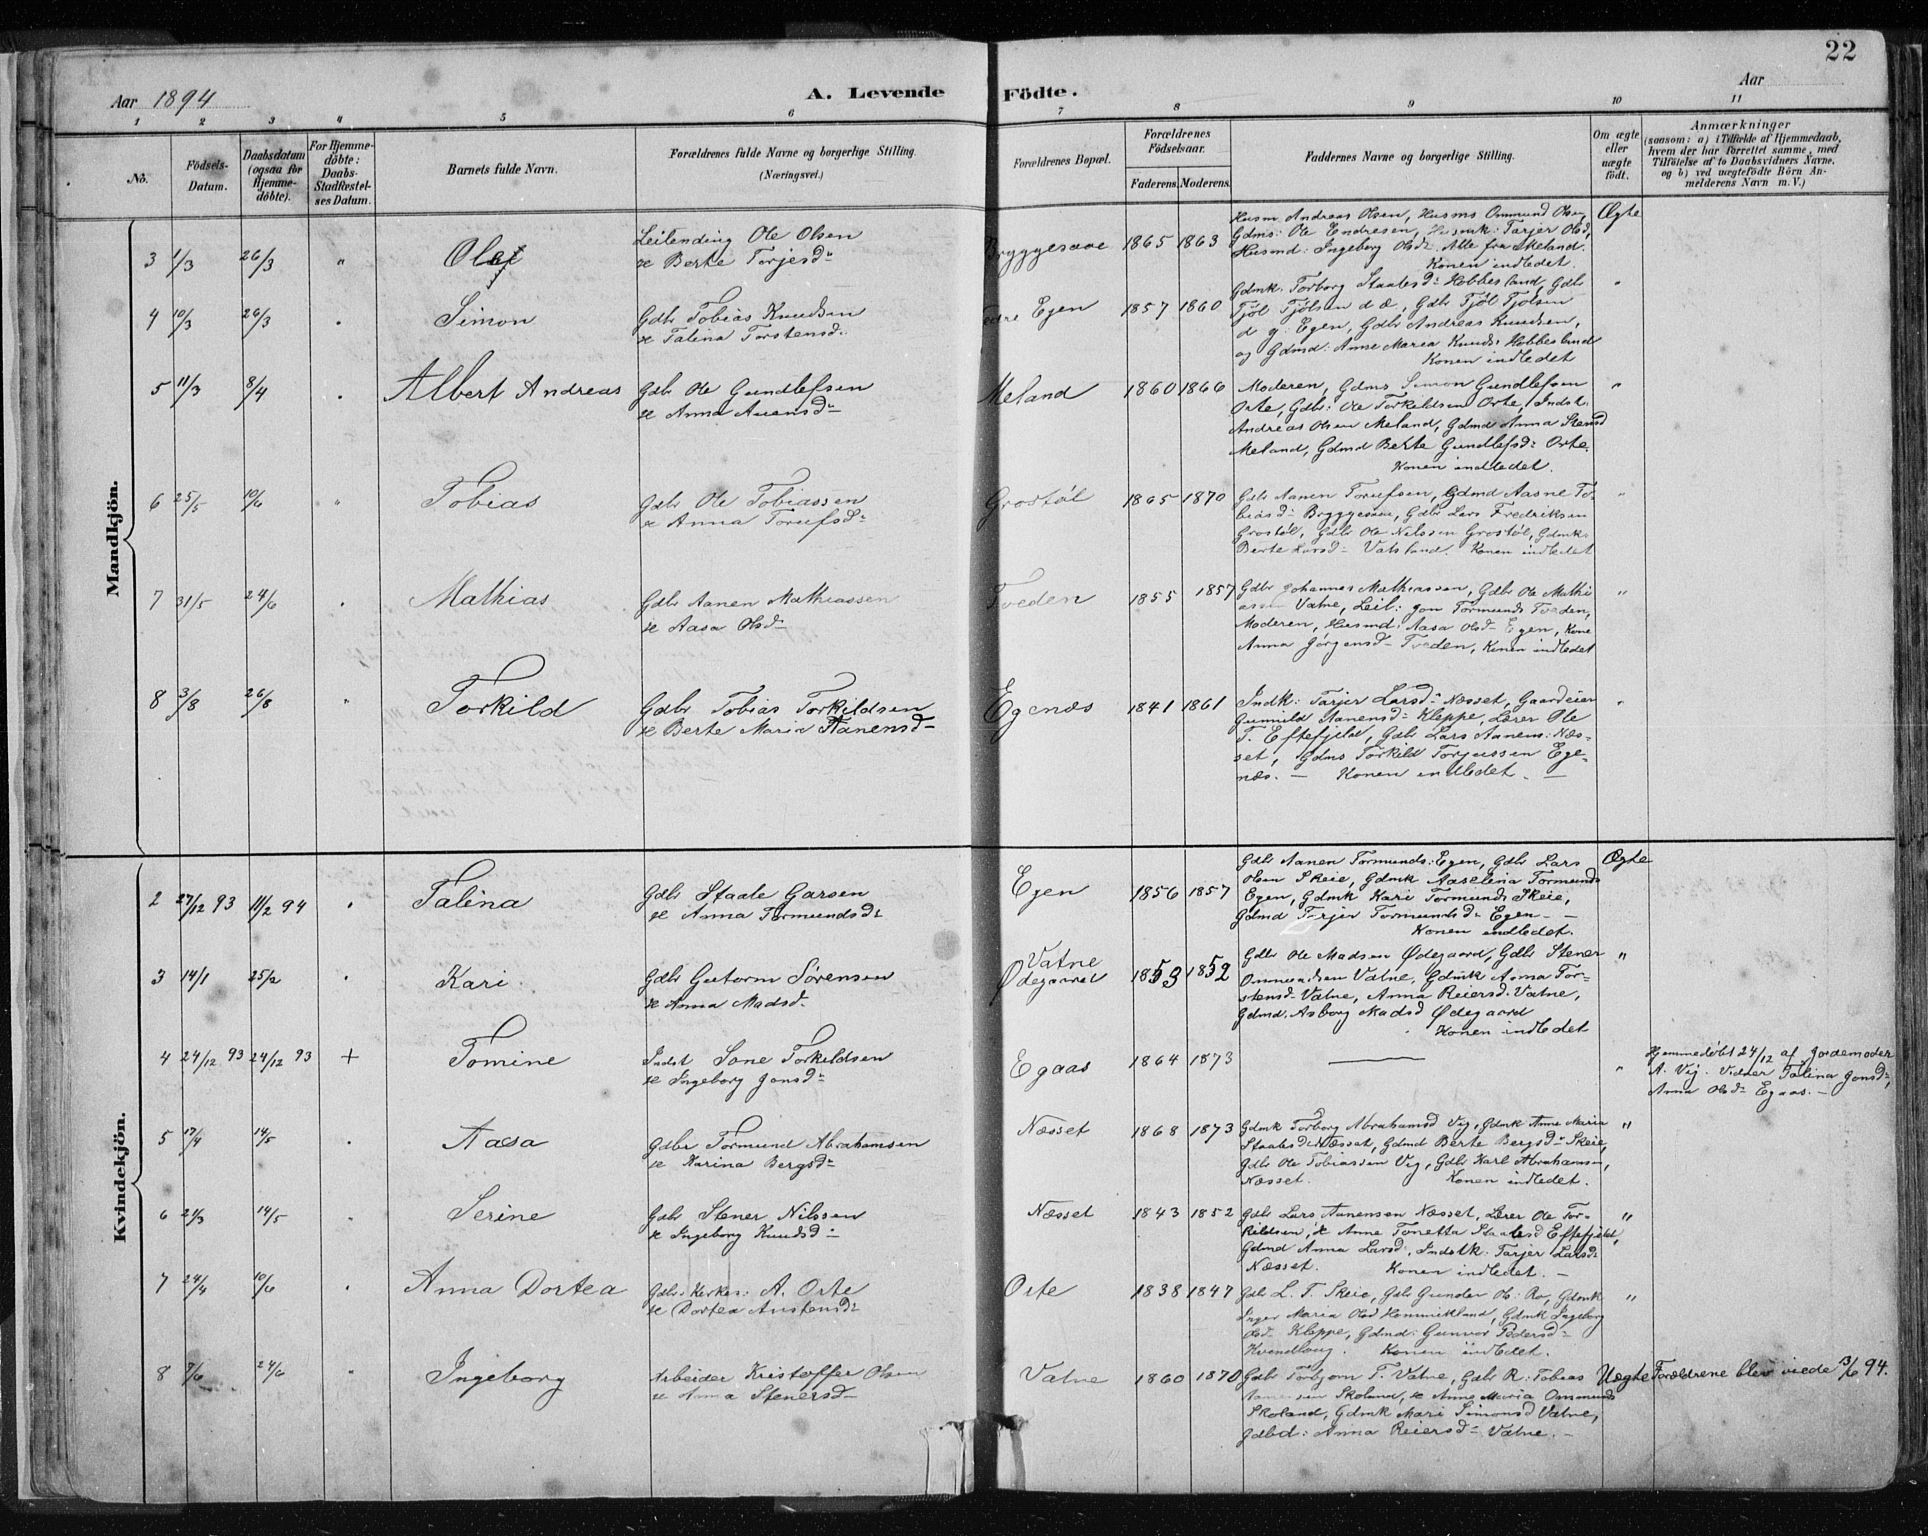 22
Aar 1894
A. Levende Födte.
Aar
1 2 3 4 5 6 7 8 9 10 11
No.
Födsels-Datum.
Daabsdatum (ogsaa for Hjemmedöbte).
For Hjemmedöbte: Daabs-Stadfæstelses Datum.
Barnets fulde Navn.
Forældrenes fulde Navne og borgerlige Stilling. (Næringsvei.)
Forældrenes Bopæl.
Forældrenes Födselsaar.
Faderens. Moderens.
Faddernes Navne og borgerlige Stilling.
Om ægte eller uægte födt.
Anmærkninger
(saasom: a) i Tilfælde af Hjemmedaab,
hvem der har forrettet samme, med
Tilföielse af to Daabsvidners Navne,
og b) ved uægtefödte Börn An-
melderens Navn m. V.)
Mandkjön.
3 1/3 26/3 "
Leilending Ole Olsen
& Berte Torjesd:
Bryggesaae 1865 1863
Husm. Andreas Olsen, Husms Ommund Olsen,
Gdms: Ole Endresen, Husmk: Tarjer Olsd,
Husmd: Ingeborg Olsd: Alle fra Skeland.
Konen indledet.
Ægte
4 10/3 26/3 " Simon
Gdbr Tobias Knudsen
& Talina Torstensd:
Egen 1857 1860
Gdmk. Torborg Staalesd: Hobbesland, Gdbr
Tjöl Tjölsen d æ, Gdbr Tjöl Tjölsen
d y. Egen, Gdbr Andreas Knudsen,
og Gdmd: Anne Maria Knudsd Hobbesland
Konen indledet
"
5 11/3 8/4 " Albert Andreas
Gdbr Ole Gundlefsen
& Anna Auensd:
Meland 1860 1866
Moderen, Gdms Simon Gundlefsen
Orte, Gdbr: Ole Torkildsen Orte, Indst.
Andreas Olsen Meland, Gdmd Anna Stensd
Meland, Gdmd Berte Gundlefsd: Orte.
Konen indledet.
"
6 25/5 10/6 " Tobias
Gdbr Ole Tobiassen
& Anna Torufsd:
Grostöl 1865 1870
Gdbr Aanen Torufsen, Gdmd Aasne To
biasd: Bryggesaae, Gdbr Lars Fredriksen
Grostöl, Gdbr Ole Nilssen Grostöl, Gdmk:
Berte Larsd: Vatsland. Konen indledet
"
7 31/5 24/6 " Mathias
Gdbr Aanen Mathiassen
& Aasa Olsd:
Tveden 1855 1857
Gdbr Johannes Mathiassen, Gdbr Ole Mathi
assen Vatne, Leil: Jon Tormunds Tveden,
Moderen, Husmd: Aasa Olsd: Egen, Kone
Anna Jörgensd: Tveden, Konen indledet
"
8 3/8 26/8 " Torkild
Gdbr Tobias Torkildsen
& Berte Maria Aanensd:
Egenæs 1841 1861
Indk: Tarjer Larsd: Næsset, Gaardeier
Gunnild Aanensd: Kleppe, Lærer Ole
T. Eftefjeld, Gdbr Lars Aanens: Næs-
set, Gdms Torkild Torjussen Ege-
næs. — Konen indledet. —
"
Kvindekjön.
2 27/12 93 11/2 94 " Talina
Gdbr Staale Garsen
& Anna Tormundsd:
Egen 1856 1857
Gdbr Aanen Tormunds: Egen, Gdbr Lars
Olsen Skeie, Gdmk Aaselina Tormunds
Egen, Gdmk Kari Tormunds Skeie,
Gdmd Tarjer Tormundsd: Egen. —
Konen indledet.
Ægte
3 14/1 25/2 " Kari
Gdbr Gutorm Sörensen
& Anna Madsd.
Vatne
Ødegaard 1853 1852
Gdbr Ole Madsen Ødegaard, Gdbr Stener
Ommundsen Vatne, Gdmk Anna Tor-
stensd. Vatne, Anna Reiersd. Vatne,
Gdmd. Asborg Madsd Ødegaard
Konen indledet
"
4 24/12 93 24/12 93 + Tomine
Indst Sone Torkildsen
& Ingeborg Jonsd:
Egaas 1864 1873
—
"
Hjemmedöbt 24/12 af Jordemoder
A. Vig. Vidner Talina Jonsd:,
Anna Olsd: Egaas. —
5 17/4 14/5 " Aasa
Gdbr Tormund Abrahamsen
& Karina Bergsd:
Næsset 1868 1873
Gdmk Torborg Abrahamsd Vig, Gdmk Anne Maria
Staalesd: Næsset, Gdmd Berte Bergsd: Skeie,
Gdbr Ole Tobiassen Vig, Gdbr Karl Abrahamsen,
Næsset. Konen indledet.
"
6 21/3 14/5 " Serine
Gdbr Stener Nilssen
& Ingeborg Knudsd:
Næsset 1843 1852
Gdbr Lars Aanensen Næsset, Lærer Ole Tor-
kildsen, & Anne Tonetta Staalesd Eftefjeld,
Gdmd Anna Larsd:, Indstk: Tarjer Larsd:
Næsset. Konen indledet. —
"
7 24/4 10/6 " Anna Dortea
Gdbr: Kirkes: A. Orte
& Dortea Austensd:
Orte 1838 1847
Gdb L. T. Skeie, Gdb Gunder Ols: Ro, Gdmk
Inger Maria Olsd Hommikland, Gdmk Ingeborg
Olsd: Kleppe, Gdmd: Gunvor Pedersd:
Konen indledet.
"
8 7/6 24/6 " Ingeborg
Arbeider Kristoffer Olsen
& Anna Stenersd:
Vatne 1860 1870
Gdbr Torbjorn T. Vatne, Gdbr R. Tobias
Aanensen Skoland, & Anne Maria Ommunds
Skoland, Gdmk Mari Simonsd Vatne,
Gdbd: Anna Reiersd: Vatne. —
Uægte
Forældrene blev viede 3/6 94.